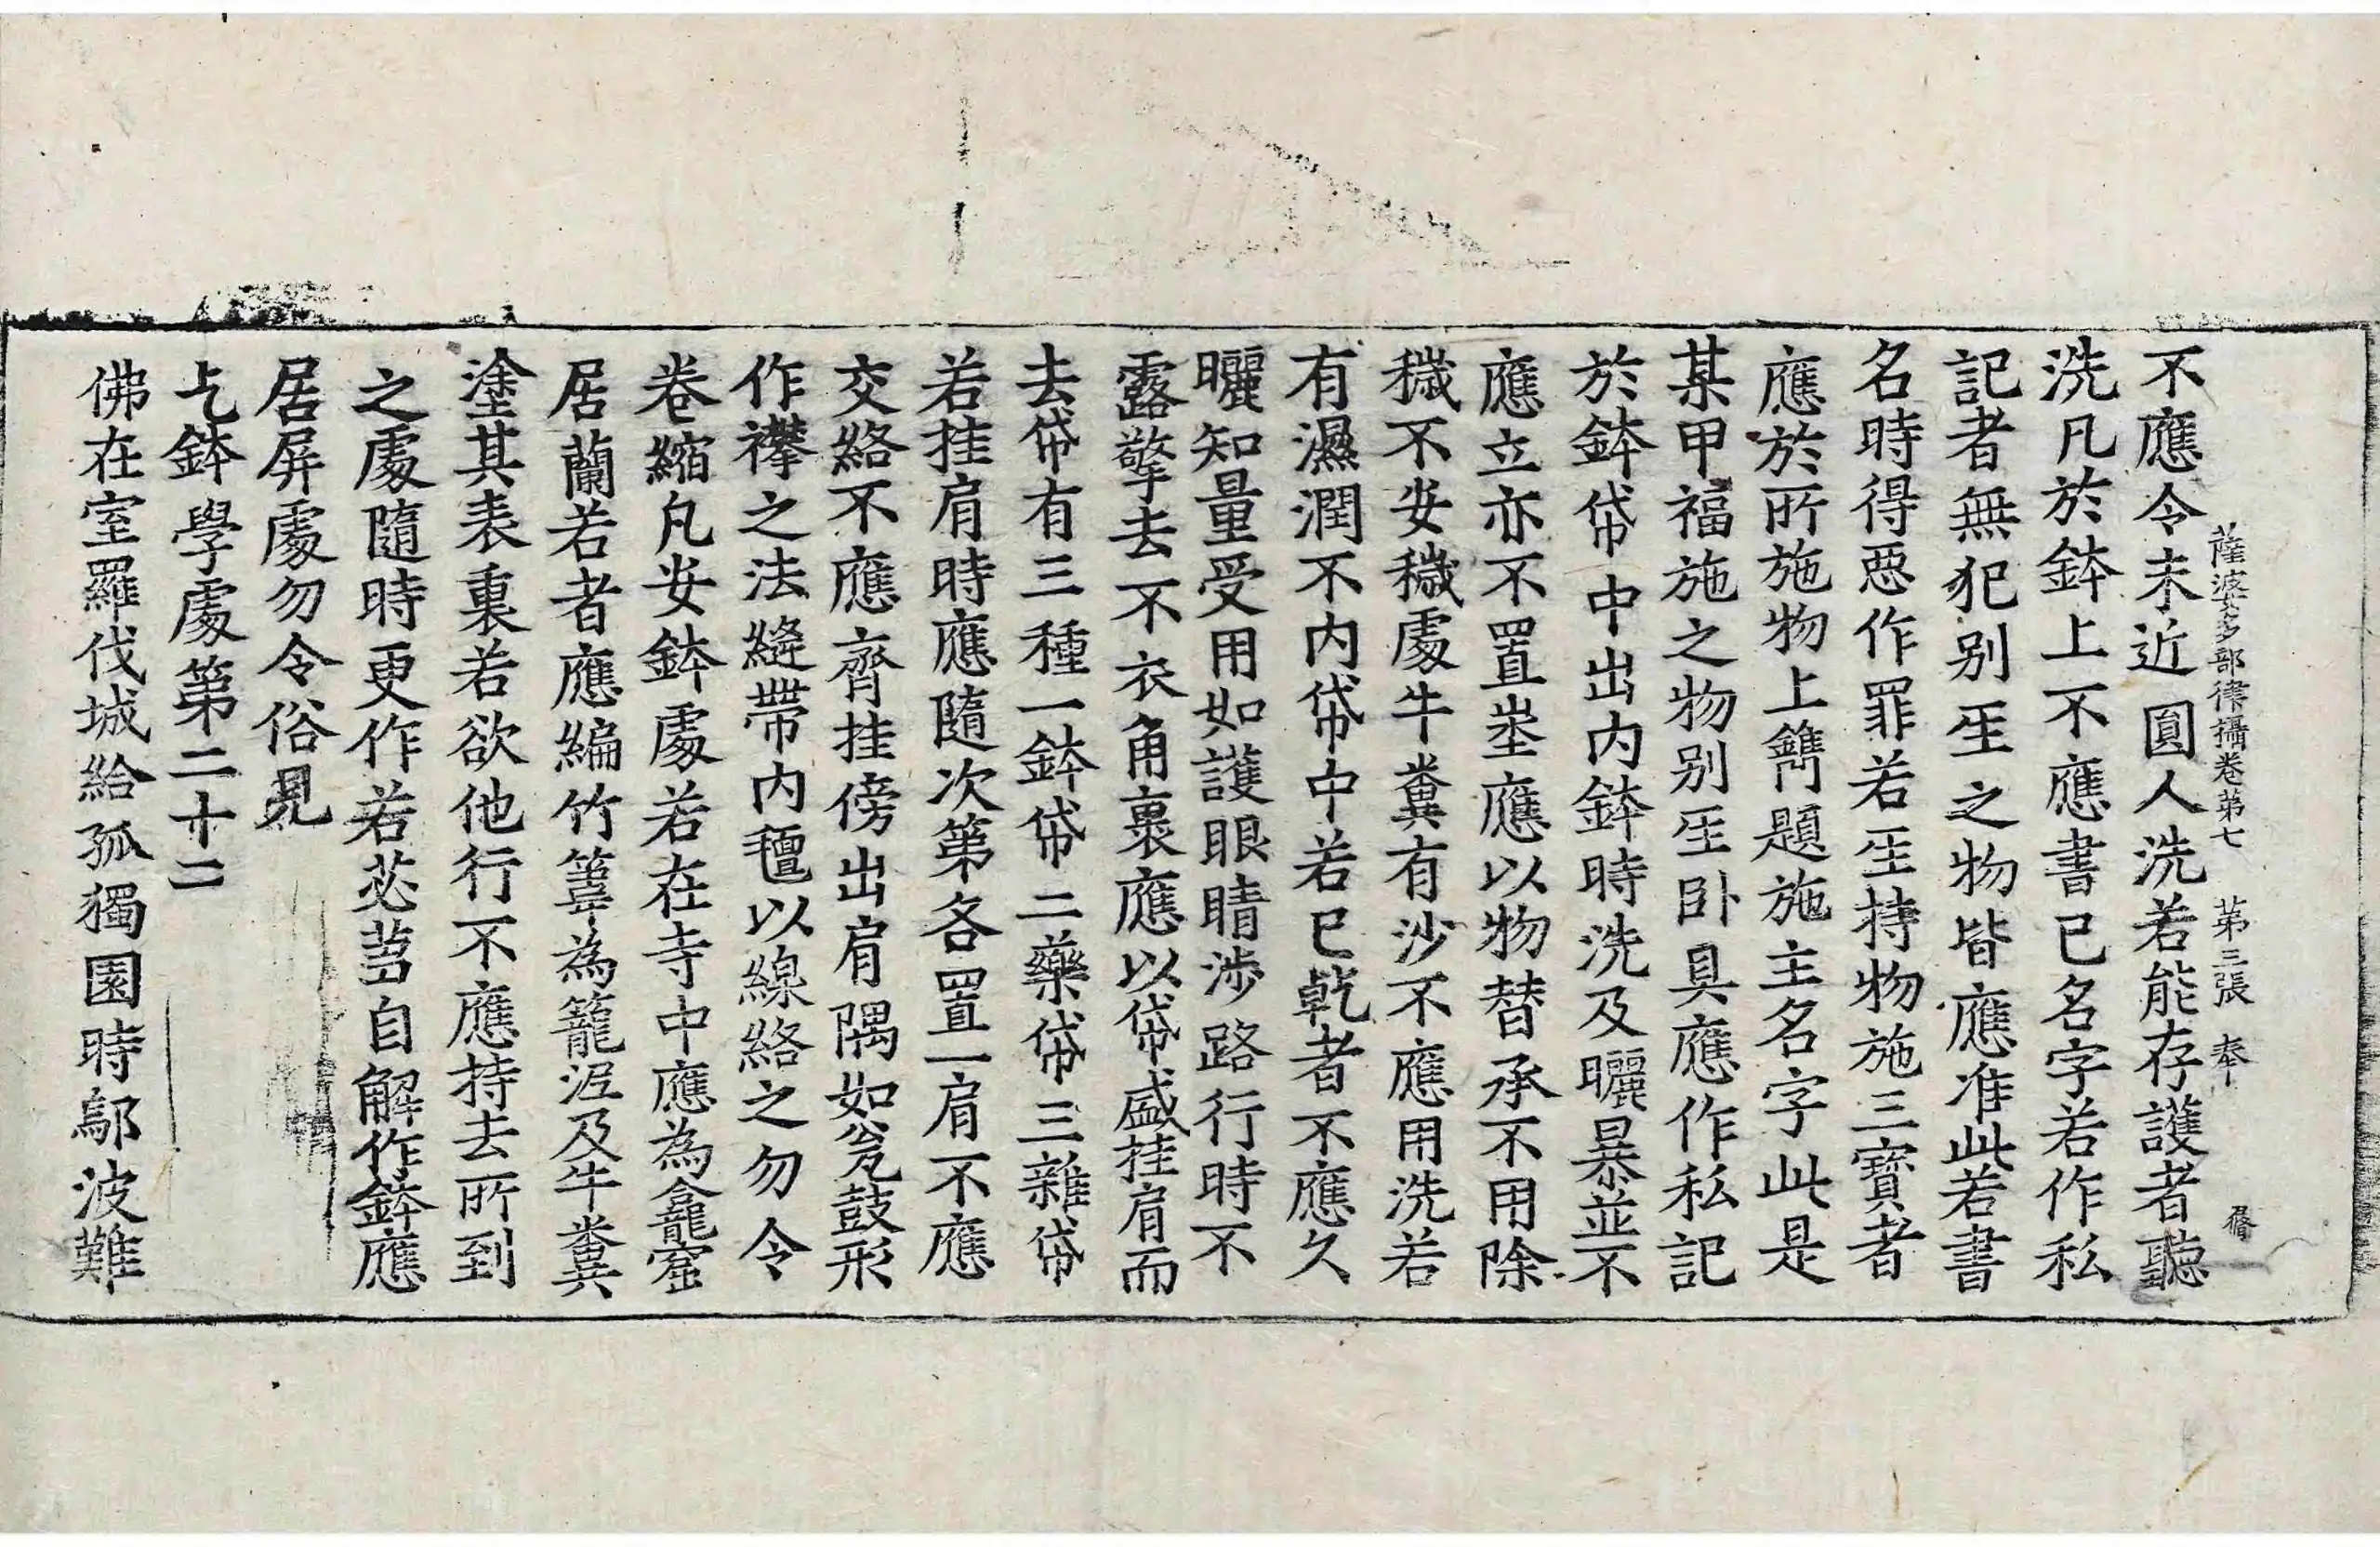 薩婆多部律攝卷第七 第三張 奉
不應令未近圓人洗若能存護者聽
洗凡於鉢上不應書已名字若作私
記者無犯别𤯔之物皆應准此若書
名時得惡作罪若𤯔持物施三寶者
應於所施物上鐫題施主名字此是
某甲福施之物别𤯔卧具應作私記
於鉢帒中出内鉢時洗及曬暴並不
應立亦不置埊應以物替承不用除
穢不安穢處牛糞有沙不應用洗若
有濕潤不内帒中若已乾者不應久
曬知量受用如護眼睛涉路行時不
露擎去不衣角裹應以帒盛挂肩而
去帒有三種一鉢帒二藥帒三雜帒
若挂肩時應隨次第各置一肩不應
交絡不應齊挂傍出肩隅如瓮鼓形
作襻之法縫帶内氊以線絡之勿令
卷縮凡安鉢處若在寺中應為龕窟
居蘭若者應編竹䈞為籠泥及牛糞
塗其表裏若欲他行不應持去所到
之處隨時更作若苾芻自解作鉢應
居屏處勿令俗見
乞鉢學處第二十二
佛在室羅伐城給孤獨園時鄔波難